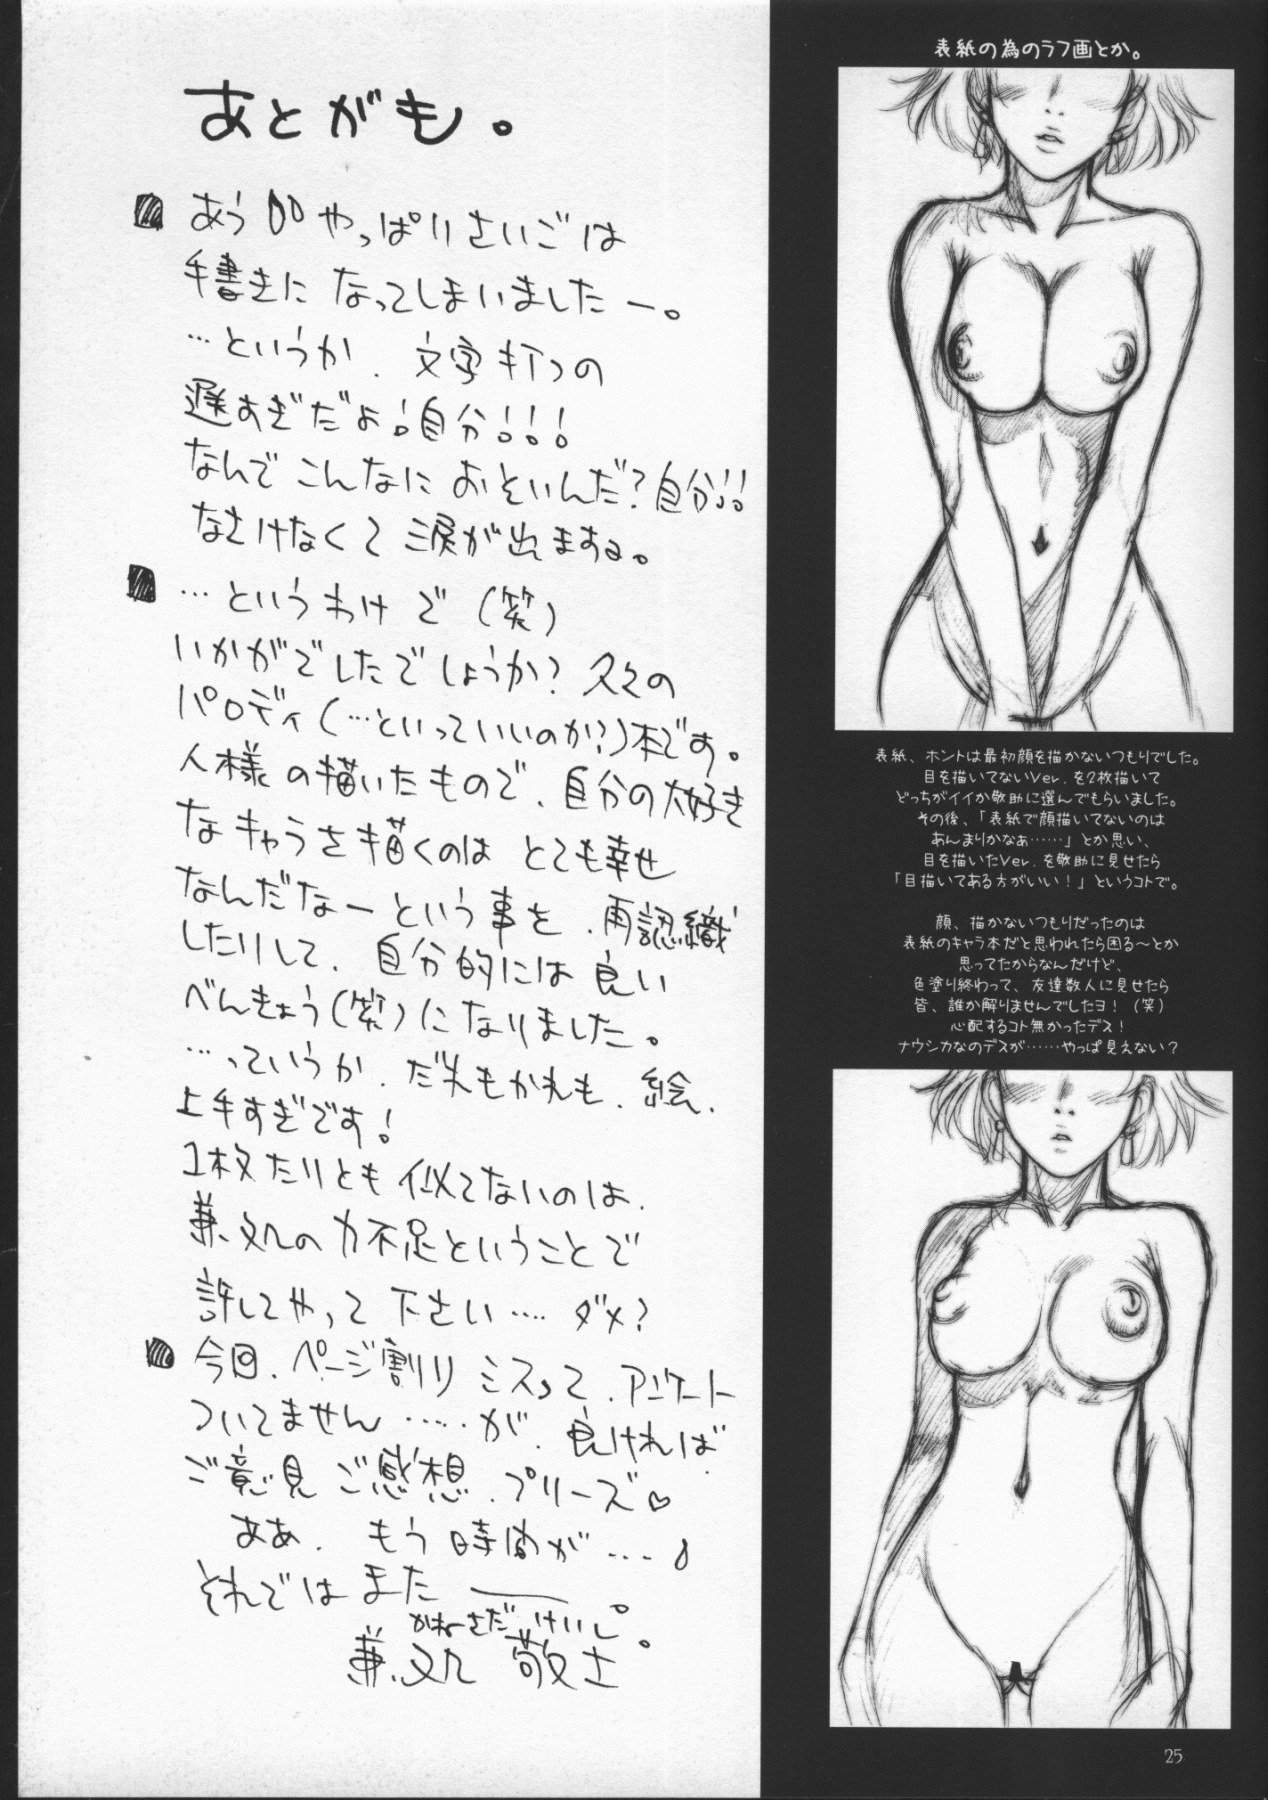 あとがも。
あう やっぱりさいごは
手書きに なってしまいましたー。
…というか、文字打つの
遅すぎだよ!自分!!!
なんでこんなに おそいんだ?自分!!
なさけなくて 涙が出ますよ。
…というわけで(笑)
いかがでしたでしょうか? 久々の
パロディ(…といっていいのか?)本です。
人様の描いたもので、自分の大好き
なキャラを描くのは とても幸せ
なんだなーという事を、再認織
したりして、自分的には良い
べんきょう(笑)になりました。
…っていうか、だれもかれも、絵、
上手すぎです!
1枚たりとも似てないのは、
兼処の力不足ということで
許してやって下さい…. ダメ?
今回、ページ割りミスって、アンケート
ついてません……が、良ければ
ご意見ご感想、プリーズ♡
ああ、もう時間が….
それではまた――。
かねさだ けいし。
兼処 敬士
表紙の為のラフ画とか。
表紙、ホントは最初顔を描かないつもりでした。
目を描いてないVer.を2枚描いて
どっちがイイか敬助に選んでもらいました。
その後、「表紙で顔描いてないのは
あんまりかなぁ……」とか思い、
目を描いたVer.を敬助に見せたら
「目描いてある方がいい!」というコトで。
顔、描かないつもりだったのは
表紙のキャラ本だと思われたら困る〜とか
思ってたからなんだけど、
色塗り終わって、友達数人に見せたら
皆、誰か解りませんでしたヨ!(笑)
心配するコト無かったデス!
ナウシカなのデスが……やっぱ見えない?
25